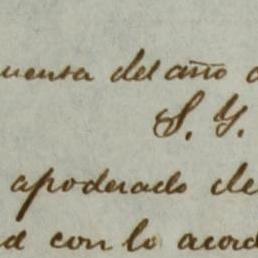 cuenta del año d
S. Y.
apoderado de
d con lo acord